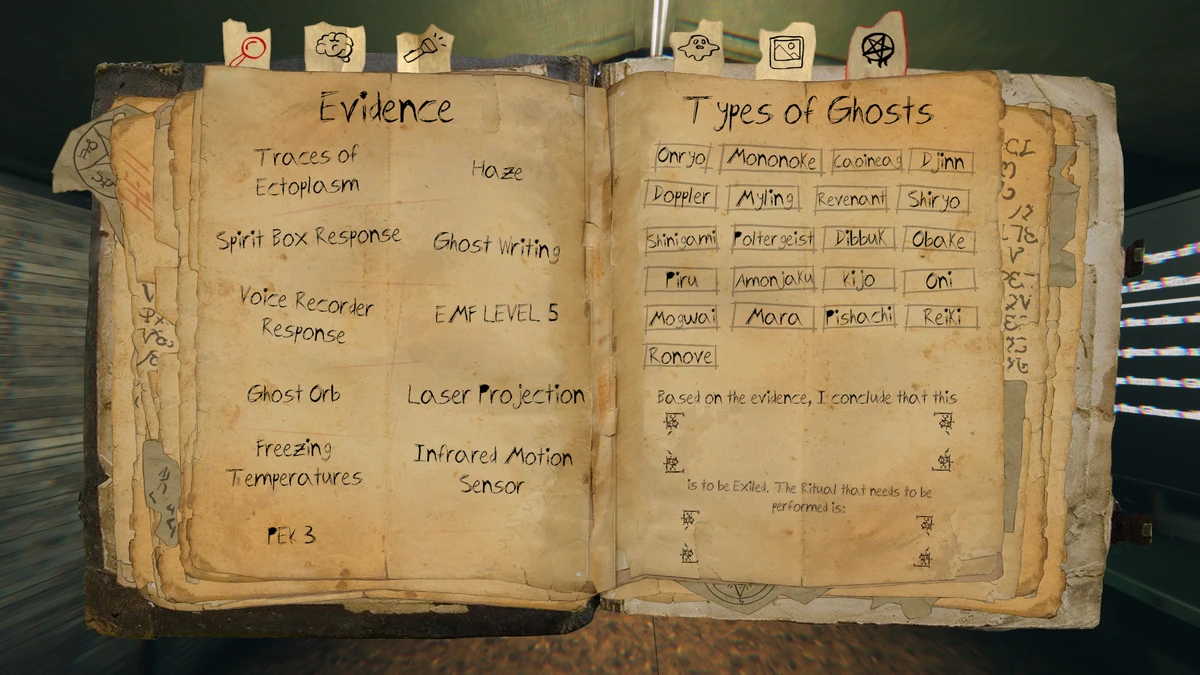 Evidence
Traces of
Ectoplasm
Haze
Spirit Box Response
Ghost Writing
Voice Recorder
Response
EMF LEVEL 5
Ghost Orb
Laser Projection
Freezing
Temperatures
Infrared Motion
Sensor
PEK 3
Types of Ghosts
Onryo Mononoke Caoineag Djinn
Doppler Myling Revenant Shiryo
Shinigami Poltergeist Dibbuk Obake
Piru Amonjaku Kijo Oni
Mogwai Mara Pishachi Reiki
Ronove
Based on the evidence, I conclude that this
is to be Exiled. The Ritual that needs to be
performed is:
HELL